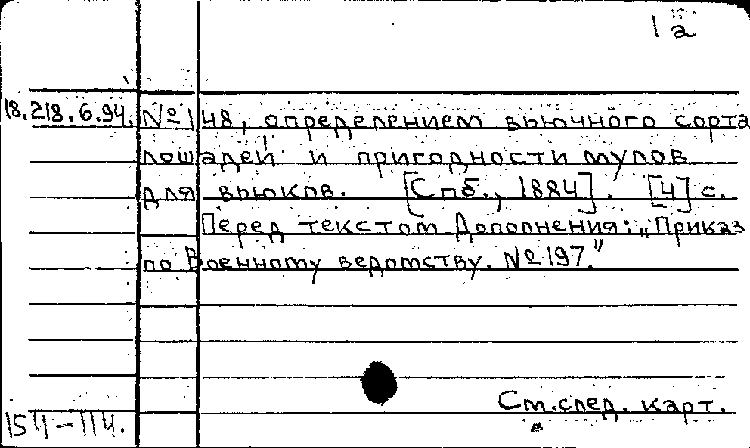 1а
18.218.6.94. № 148, определением вьючного сорта
лошадей и пригодности мулов
для вьюков. [Спб., 1884]. [4] с.
Перед текстом Дополнения: „Приказ
по Военному ведомству. № 197.”
См. след. карт.